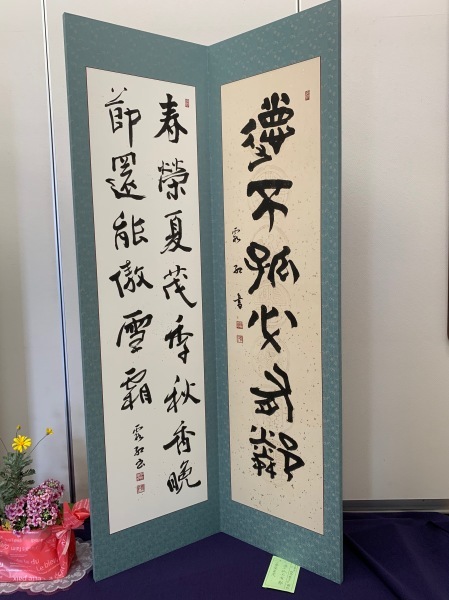 德不孤必有鄰
書
春榮夏茂季秋香晩
節還能傲雪霜